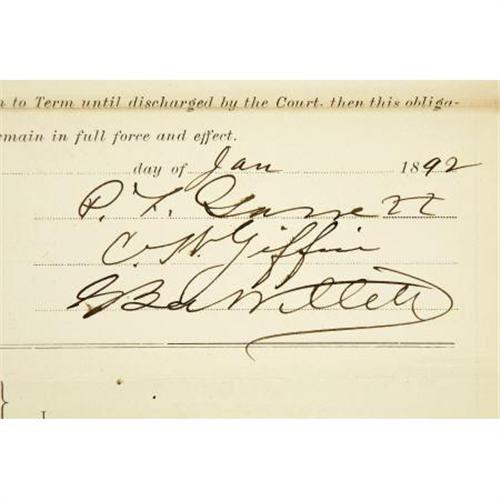 n to Term until discharged by the Court, then this obliga-
emain in full force and effect.
day of Jan 1892
P. F. Garrett
C. W. Giffin